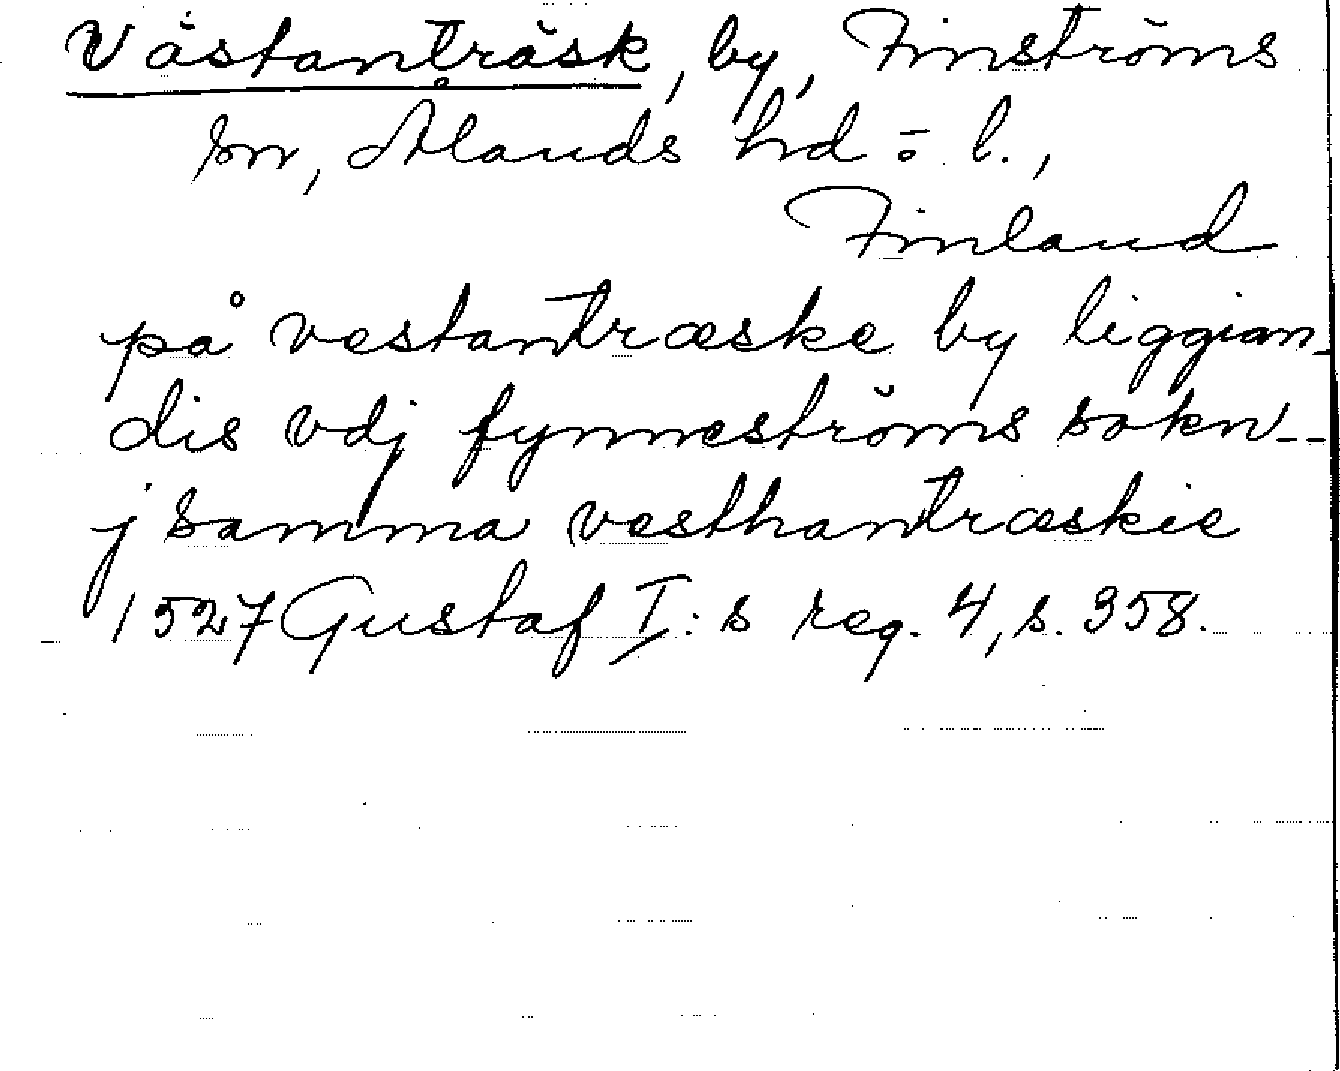 Västanträsk, by, Finströms
sn, Ålands hd o. l.,
Finland
på vestantræske by liggian-
dis vdj fynneströms sokn--
j samma vesthantræskie
1527 Gustaf I:s reg. 4, s. 358.